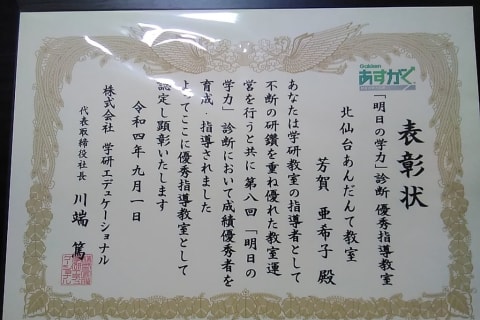 Gakken
あすがく
表彰状
「明日の学力」診断 優秀指導教室
北仙台あんだんて教室
芳賀 亜希子 殿
あなたは学研教室の指導者として
不断の研鑽を重ね優れた教室運
営を行うと共に第八回「明日の
学力」診断において成績優秀者を
育成・指導されました
よってここに優秀指導教室として
認定し顕彰いたします
令和四年九月一日
株式会社 学研エデュケーショナル
代表取締役社長 川端 篤